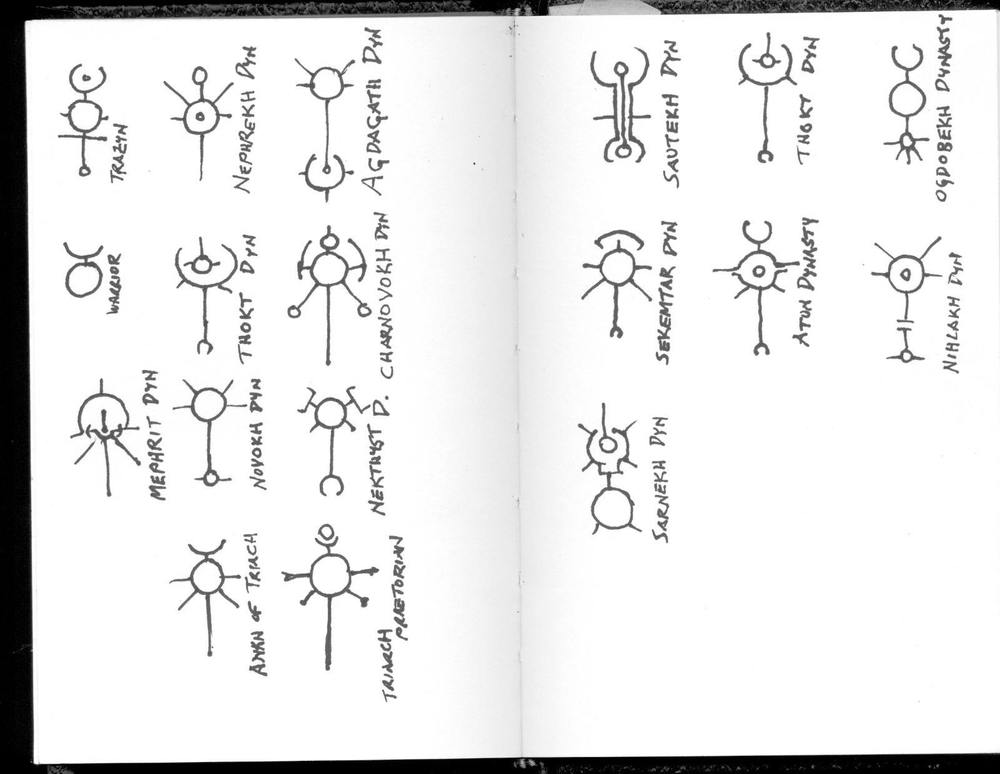 TRAZYN
NEPHREKH DYN
AGDAGATH DYN
WARRIOR
THOKT DYN
CHARNOVOKH DYN
MEPHRIT DYN
NOVOKH DYN
NEKTHYST D.
ANKH OF TRIARCH
TRIARCH
PRAETORIAN
SAUTEKH DYN
THOKT DYN
OGDOBEKH DYNASTY
SEKEMTAR DYN
ATUN DYNASTY
NIHLAKH DYN
SARNEKH DYN